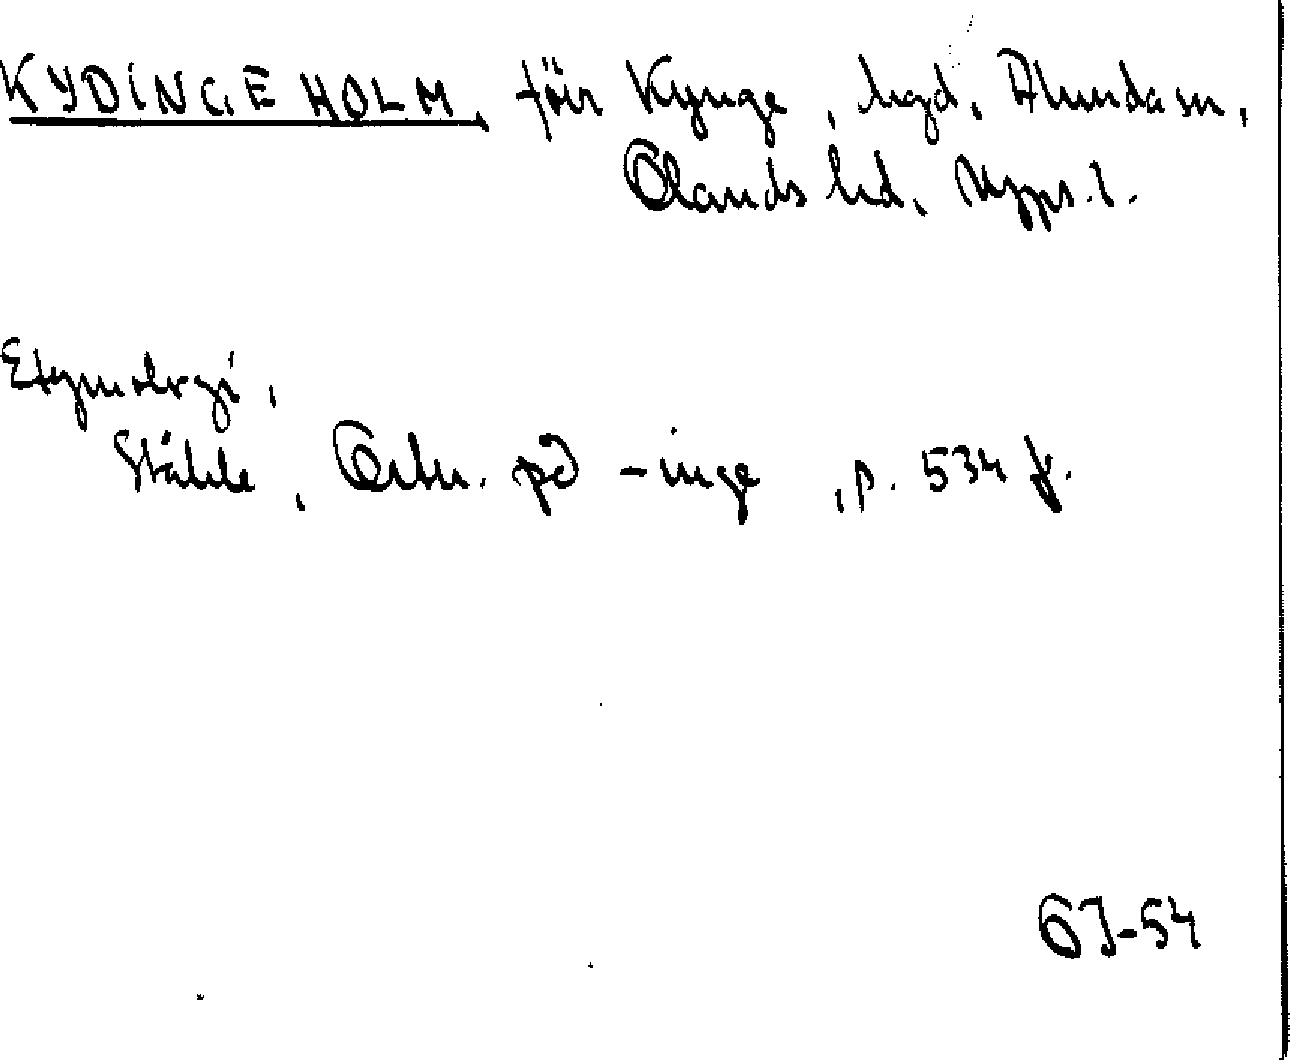 KYDINGEHOLM, förr Kynge, hgd, Alunda sn,
Olands hd, Upps. l.
Etymologi,
Ståhle, Ortn. på -inge, p. 534 f.
GJ-54